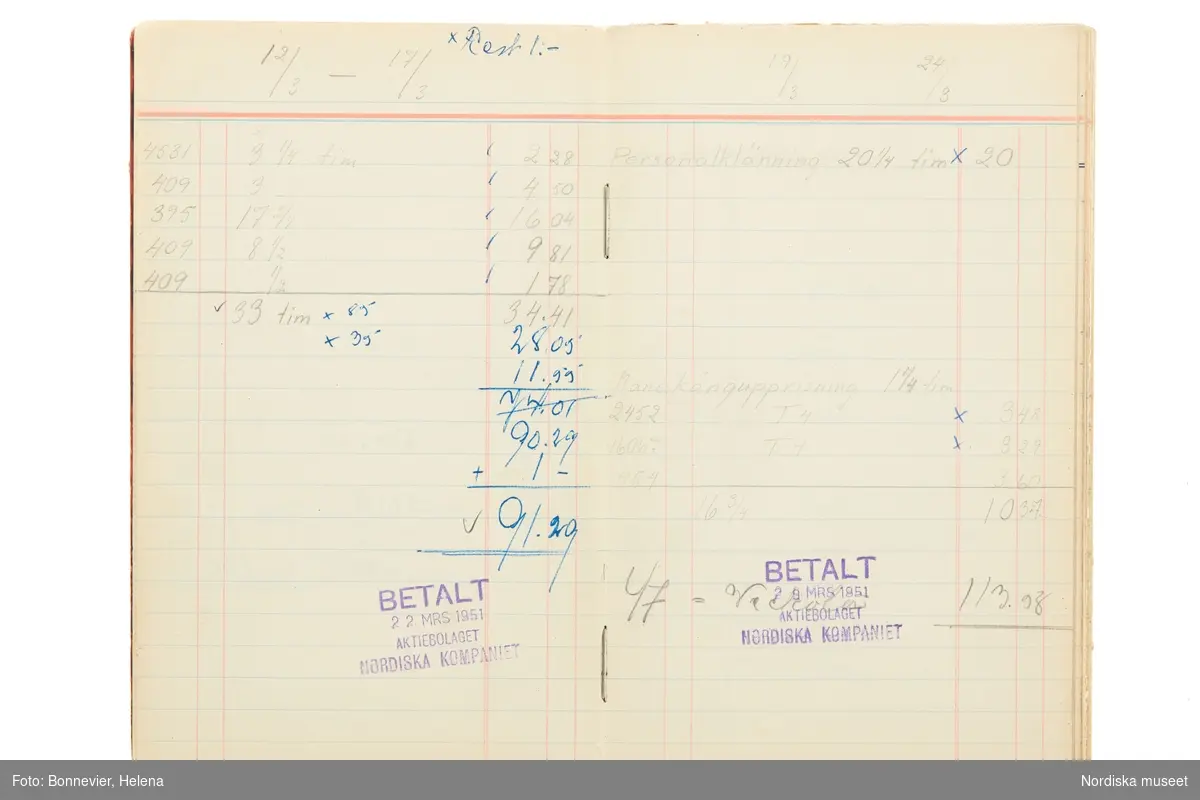 x Rest 1:-
12/3 — 17/3
4581 3 1/4 tim / 2 28
409 3 / 4 50
395 17 / 16 04
409 8 1/2 / 9 81
409 / 1 78
✓ 33 tim x 85 34.41
x 35 28.05
11.55
74.01
90.29
+ 1 –
✓ 91.29
BETALT
22 MRS 1951
AKTIEBOLAGET
NORDISKA KOMPANIET
19/3 24/3
Personalklänning 20 1/4 tim x 20
1 1/4 tim
2452 T 4 x 3 48
T 4 x 3 29
3 60
16 3/4 10 37
47 = 113.98
BETALT
29 MRS 1951
AKTIEBOLAGET
NORDISKA KOMPANIET
Foto: Bonnevier, Helena
Nordiska museet